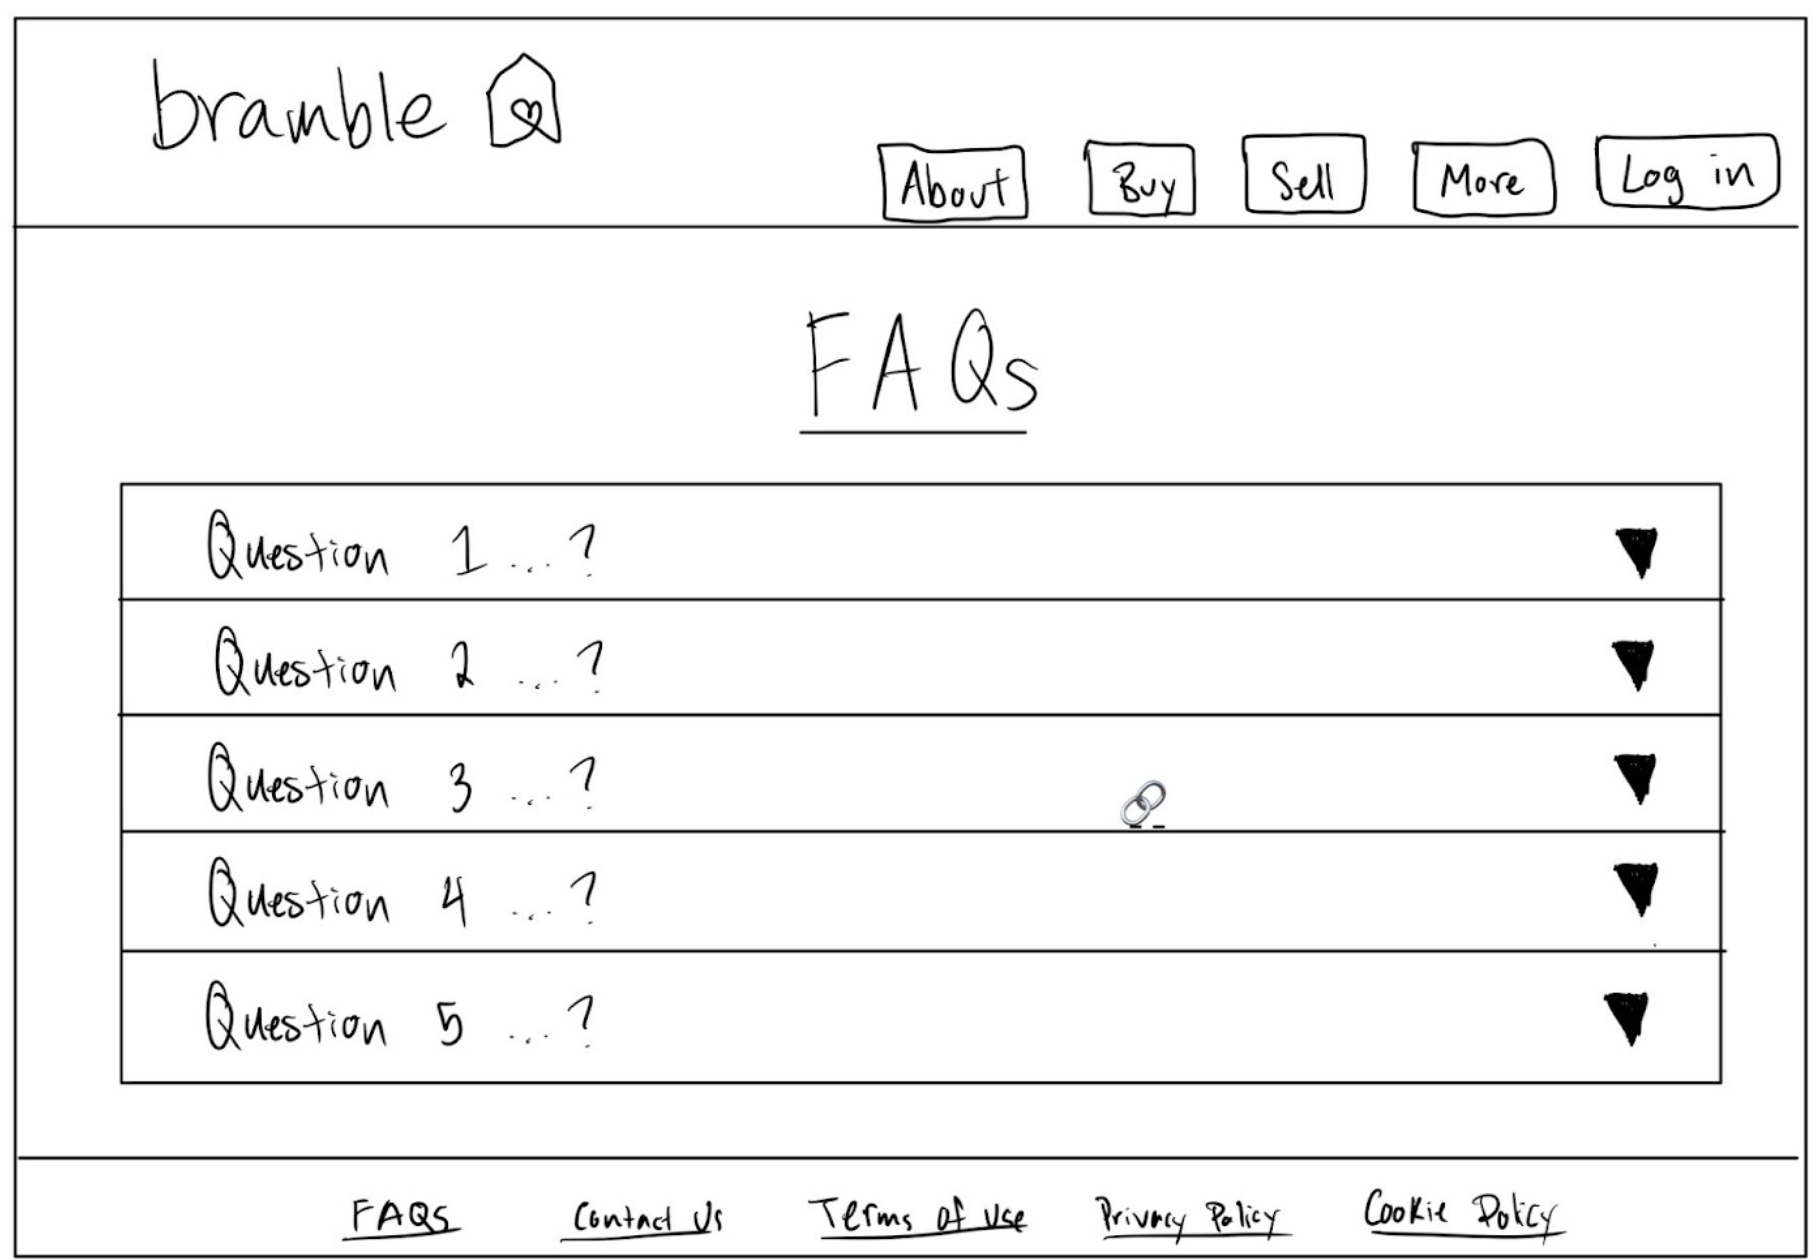 bramble
About Buy Sell More Log in
FAQs
Question 1 ... ?
Question 2 ... ?
Question 3 ... ?
Question 4 ... ?
Question 5 ... ?
FAQS Contact Us Terms of Use Privacy Policy Cookie Policy